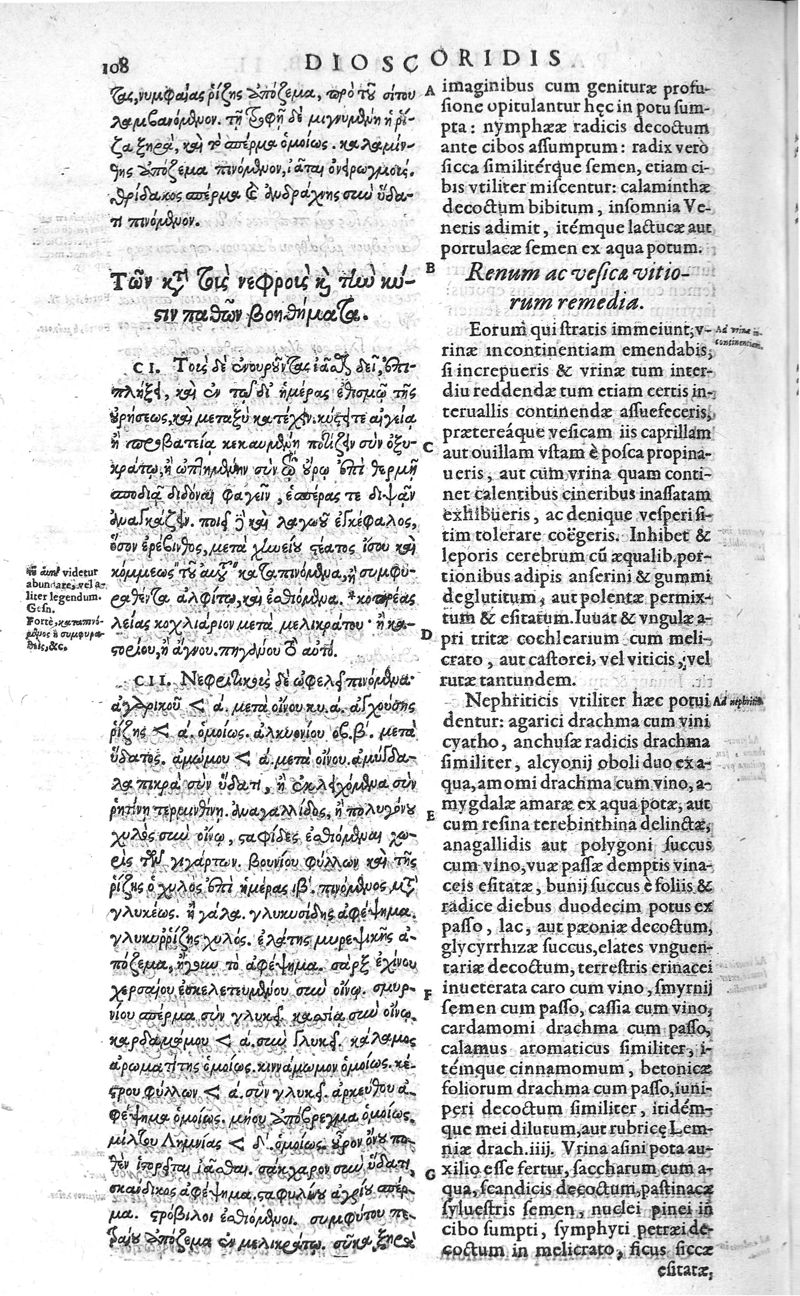 108
DIOSCORIDIS
τας, νυμφαίας ῥίζης ἀπόζεμα, πρὸ τοῦ σίτου
λαμβανόμενον. τῇ τροφῇ δὲ μιγνυμένη ἡ ῥί-
ζα ξηρὰ, καὶ τὸ σπέρμα ὁμοίως. καλαμίν-
θης ἀπόζεμα πινόμενον, ἰᾶται ὀνειρωγμούς.
θρίδακος σπέρμα καὶ ἀνδράχνης σὺν ὕδα-
τι πινόμενον.
Τῶν κατὰ τοὺς νεφροὺς καὶ τὴν κύ-
στιν παθῶν βοηθήματα.
CI. Τοὺς δὲ ἐνουροῦντας ἰᾶσθαι δεῖ, ἐπι-
πλήξει, καὶ ἐν τῷ δι' ἡμέρας ἐθισμῷ τῆς
οὐρήσεως, καὶ μεταξὺ κατέχειν. κύστιν τε αἰγεία
ἢ προβατεία κεκαυμένη ποτίζειν σὺν ὀξυ-
κράτῳ, ἢ ὠπτημένην σὺν τῷ οὔρῳ ἐπὶ θερμῇ
σποδιᾷ διδόναι φαγεῖν, ἑσπέρας τε διψᾶν
ἀναγκάζειν. ποιεῖ δὲ καὶ λαγωοῦ ἐγκέφαλος,
ὅσον ἐρέβινθος, μετὰ χηνείου στέατος ἴσου καὶ
κόμμεως "τοῦ αὐτοῦ" καταπινόμενα, ἢ συμφυ-
ραθέντα ἀλφίτῳ, καὶ ἐσθιόμενα. *
λείας κοχλιάριον μετὰ μελικράτου· ἢ κα-
στορίου, ἢ ἄγνου. πηγάνου τὸ αὐτό.
CII. Νεφριτικοῖς δὲ ὠφελεῖ πινόμενα·
ἀγαρικοῦ < ά. μετὰ οἴνου κυ. ά. ἀγχούσης
ῥίζης < ά. ὁμοίως. ἀλκυονίου ὀβ. β. μετὰ
ὕδατος. ἀμώμου < ά. μετὰ οἴνου. ἀμύγδα-
λα πικρὰ σὺν ὕδατι, ἢ ἐκλειχόμενα σὺν
ῥητίνῃ τερμινθίνῃ. ἀναγαλλίδος, ἢ πολυγόνου
χυλὸς σὺν οἴνῳ, σταφίδες ἐσθιόμεναι χω-
ρὶς τῶν γιγάρτων. βουνίου φύλλων καὶ τῆς
ῥίζης ὁ χυλὸς ἐπὶ ἡμέρας ιβ'. πινόμενος μετὰ
γλυκέως. ἢ γάλα. γλυκυσίδης ἀφέψημα.
γλυκυῤῥίζης χυλός. ἐλάτης μυρεψικῆς ἀ-
πόζεμα, ἤγουν τὸ ἀφέψημα. σὰρξ ἐχίνου
χερσαίου ἐσκελετευμένου σὺν οἴνῳ. σμυρ-
νίου σπέρμα σὺν γλυκεῖ. κασία σὺν οἴνῳ.
καρδαμώμου < ά. σὺν γλυκεῖ. κάλαμος
ἀρωματίτης ὁμοίως. κινάμωμον ὁμοίως. κέ-
στρου φύλλων < ά. σὺν γλυκεῖ. ἀρκεύθου ἀ-
φέψημα ὁμοίως. μήου ἀπόβρεγμα ὁμοίως.
μίλτου Λημνίας < δ'. ὁμοίως. οὖρον ὄνου πο-
θὲν ἱστορεῖται ἰᾶσθαι. σάκχαρον σὺν ὕδατι,
σκάνδικος ἀφέψημα, σταφυλίνου ἀγρίου σπέρ-
μα. στρόβιλοι ἐσθιόμενοι. συμφύτου πε-
τραίου ἀπόζεμα ἐν μελικράτῳ. σῦκα ξηρὰ
videtur
abundare, vel a-
liter legendum.
Gesn.
Fortè, καταπινό-
μενος ἢ συμφυρα-
θεὶς, &c.
A
B
C
D
E
F
G
imaginibus cum genituræ profu-
sione opitulantur hęc in potu sum-
pta: nymphææ radicis decoctum
ante cibos assumptum: radix verò
sicca similitérque semen, etiam ci-
bis vtiliter miscentur: calaminthæ
decoctum bibitum, insomnia Ve-
neris adimit, itémque lactucæ aut
portulacæ semen ex aqua potum.
Renum ac vesicæ vitio-
rum remedia.
Eorum qui stratis immeiunt, v-
rinæ incontinentiam emendabis,
si increpueris & vrinæ tum inter-
diu reddendæ tum etiam certis in-
teruallis continendæ assuefeceris,
prætereáque vesicam iis caprillam
aut ouillam vstam è posca propina-
ueris, aut cùm vrina quam conti-
net calentibus cineribus inassatam
exhibueris, ac denique vesperi si-
tim tolerare coëgeris. Inhibet &
leporis cerebrum cū æqualib. por-
tionibus adipis anserini & gummi
deglutitum, aut polentæ permix-
tum & esitatum. Iuuat & vngulæ a-
pri tritæ cochlearium cum meli-
crato, aut castorei, vel viticis, vel
rutæ tantundem.
Nephriticis vtiliter hæc potui
dentur: agarici drachma cum vini
cyatho, anchusæ radicis drachma
similiter, alcyonij oboli duo ex a-
qua, amomi drachma cum vino, a-
mygdalæ amaræ ex aqua potæ, aut
cum resina terebinthina delinctæ,
anagallidis aut polygoni succus
cum vino, vuæ passæ demptis vina-
ceis esitatæ, bunij succus è foliis &
radice diebus duodecim potus ex
passo, lac, aut pæoniæ decoctum,
glycyrrhizæ succus, elates vnguen-
tariæ decoctum, terrestris erinacei
inueterata caro cum vino, smyrnij
semen cum passo, cassia cum vino,
cardamomi drachma cum passo,
calamus aromaticus similiter, i-
témque cinnamomum, betonicæ
foliorum drachma cum passo, iuni-
peri decoctum similiter, itidém-
que mei dilutum, aut rubricę Lem-
niæ drach. iiij. Vrina asini pota au-
xilio esse fertur, saccharum cum a-
qua, scandicis decoctum, pastinacæ
syluestris semen, nuclei pinei in
cibo sumpti, symphyti petræi de-
coctum in melicrato, ficus siccæ
esitatæ,
Ad vrinæ in-
continentiam.
Ad nephritic.